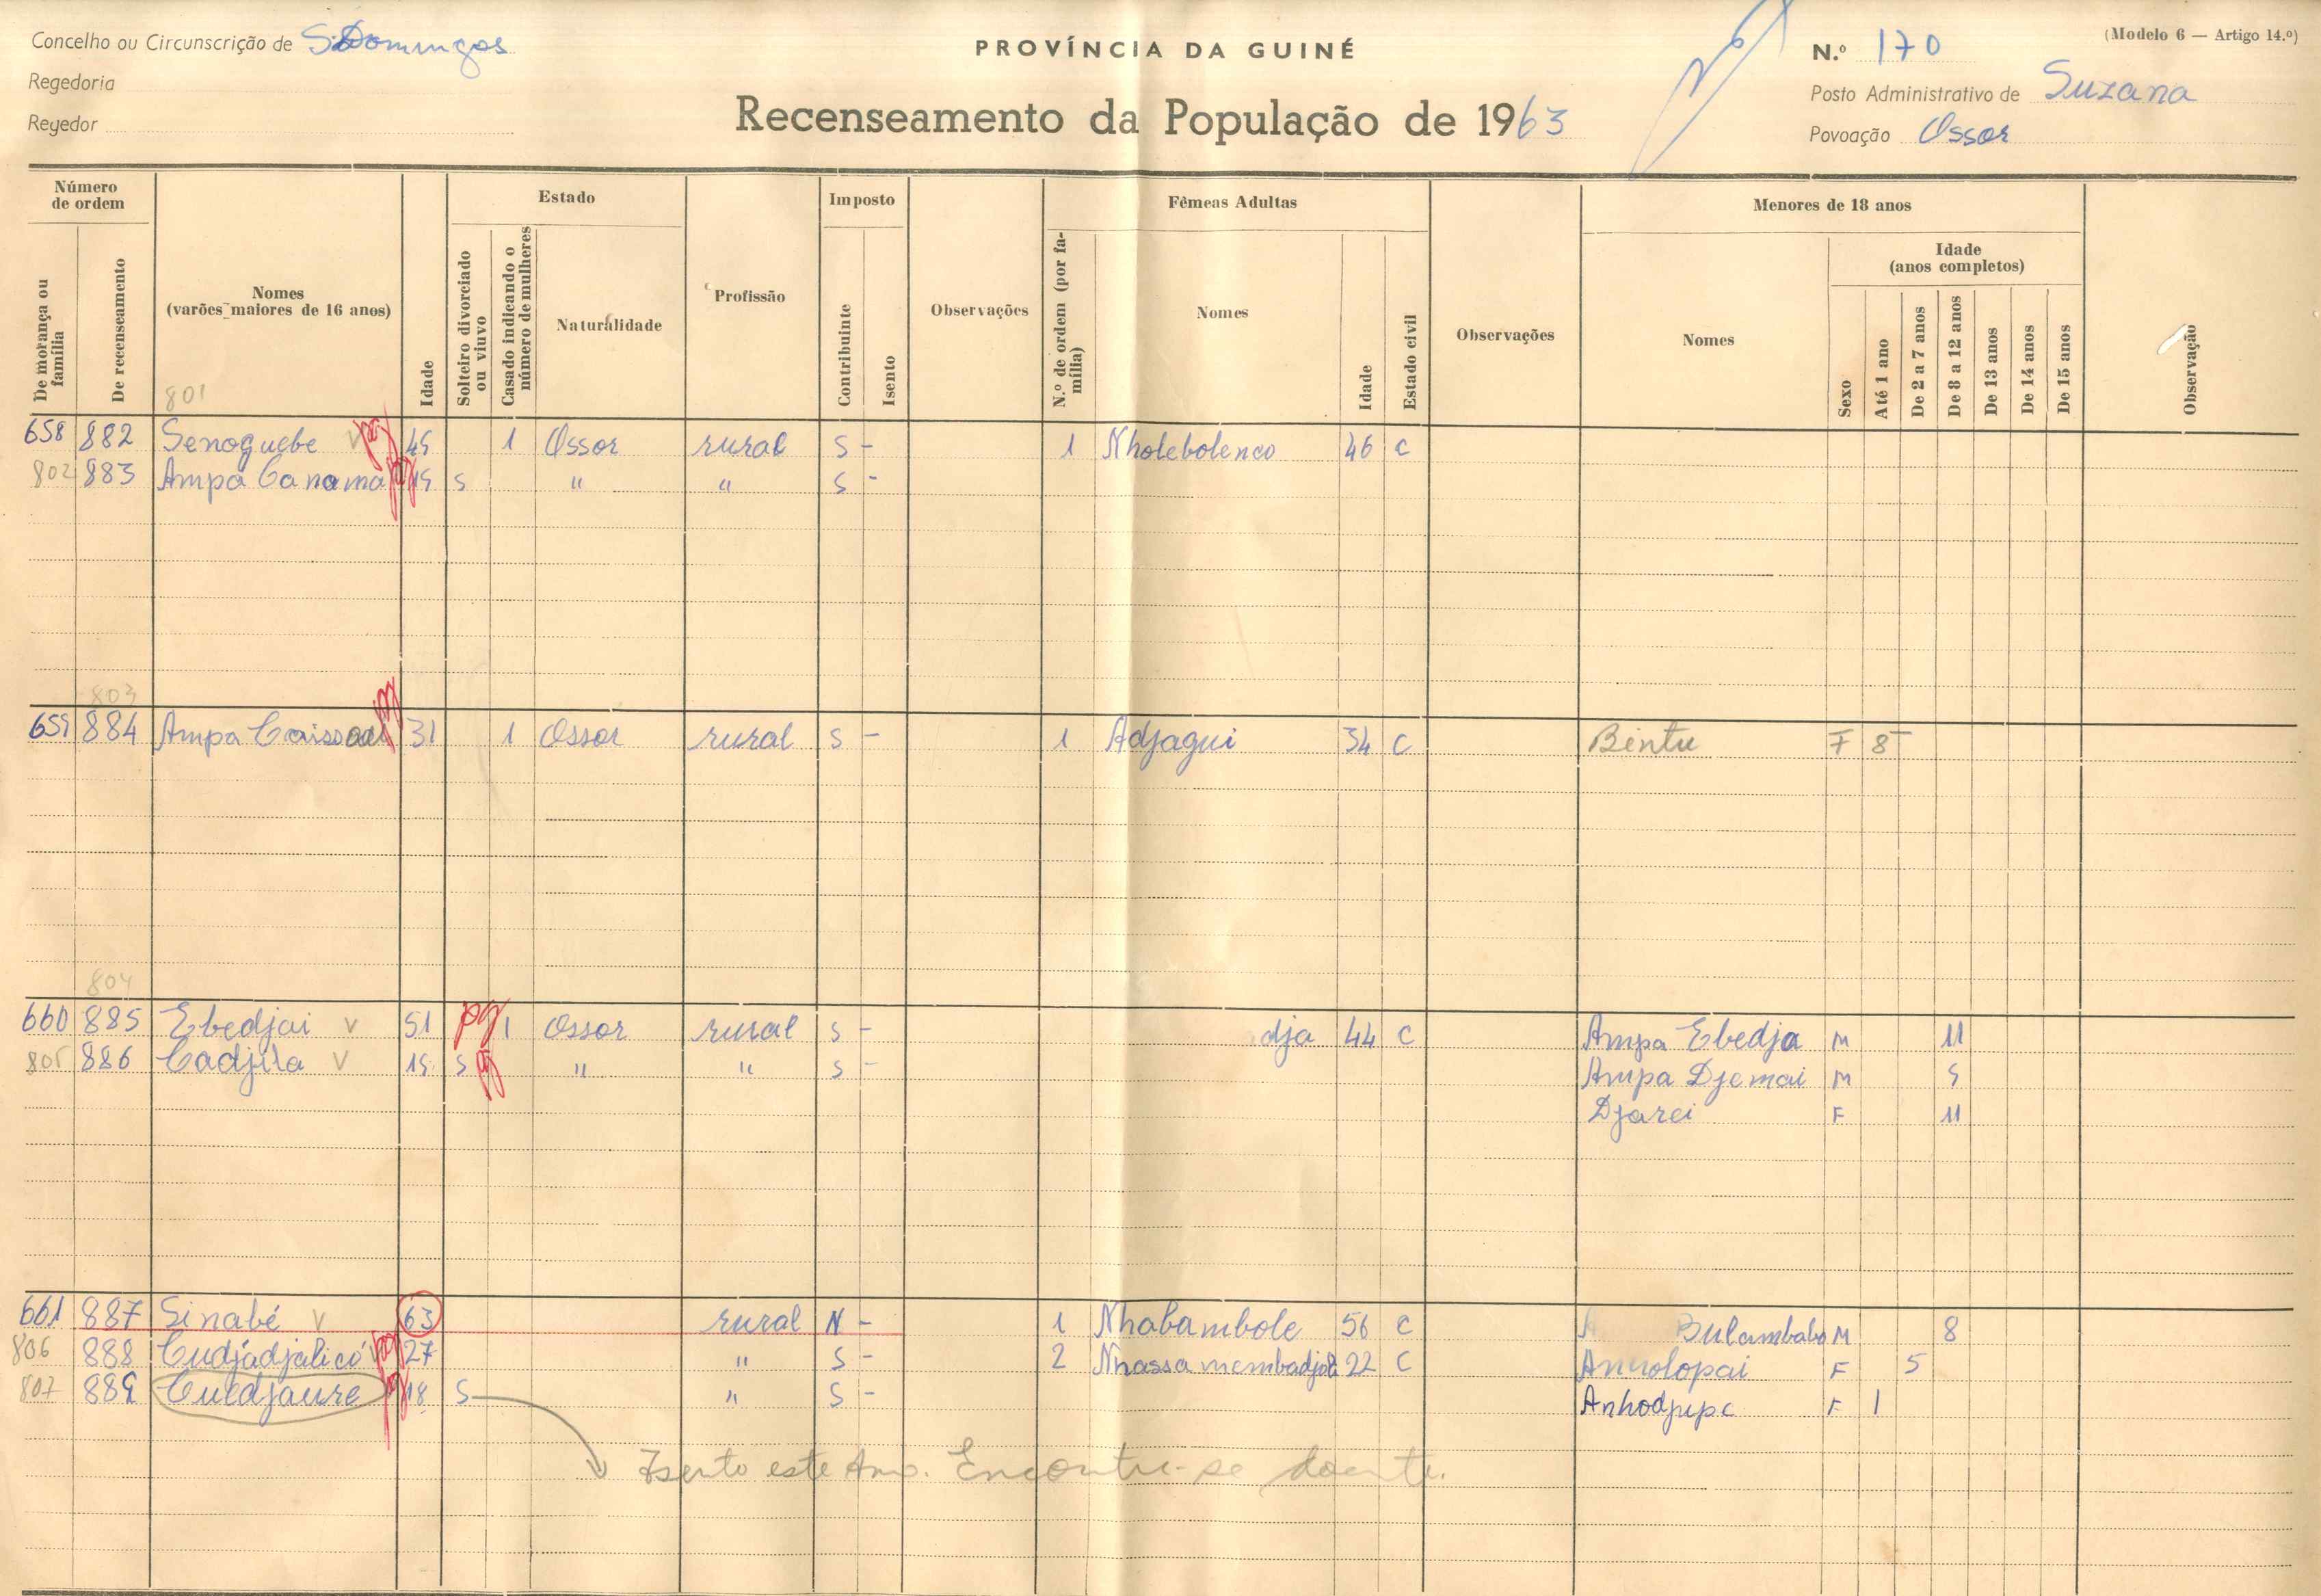 Concelho ou Circunscrição de S. Domingos
PROVÍNCIA DA GUINÉ
N.º 170
(Modelo 6 — Artigo 14.º)
Regedoria
Posto Administrativo de Suzana
Regedor
Recenseamento da População de 1963
Povoação Ossor
Número de ordem
De morança ou família
De recenseamento
Nomes
(varões maiores de 16 anos)
Idade
Estado
Solteiro divorciado ou viuvo
Casado indicando o número de mulheres
Naturalidade
Profissão
Imposto
Contribuinte
Isento
Observações
Fêmeas Adultas
N.º de ordem (por família)
Nomes
Idade
Estado civil
Observações
Menores de 18 anos
Nomes
Sexo
Idade
(anos completos)
Até 1 ano
De 2 a 7 anos
De 8 a 12 anos
De 13 anos
De 14 anos
De 15 anos
Observação
801
658 882 Senoguebe V pg 45 1 Ossor rural S - 1 Nholebolenco 46 C
802 883 Ampa Canama pg S " " S -
803
659 884 Ampa Caissau pg 31 1 Ossor rural S - 1 Adjagui 34 C Bintu F 8
804
660 885 Ebedjai V 51 pg 1 Ossor rural S - dja 44 C Ampa Ebedja M 11
805 886 Cadjila V S pg " " S - Ampa Djemai M
Djarei F 11
661 887 Sinabé V 63 rural N - 1 Nhabambole 56 C Bulambabo M 8
806 888 Cudjádjalicó V pg 27 " S - 2 Nhassa membadjola 22 C F 5
807 889 Cuedjaure pg 18 S " S - Anhodjupe F 1
Isento este Ano. Encontra-se doente.